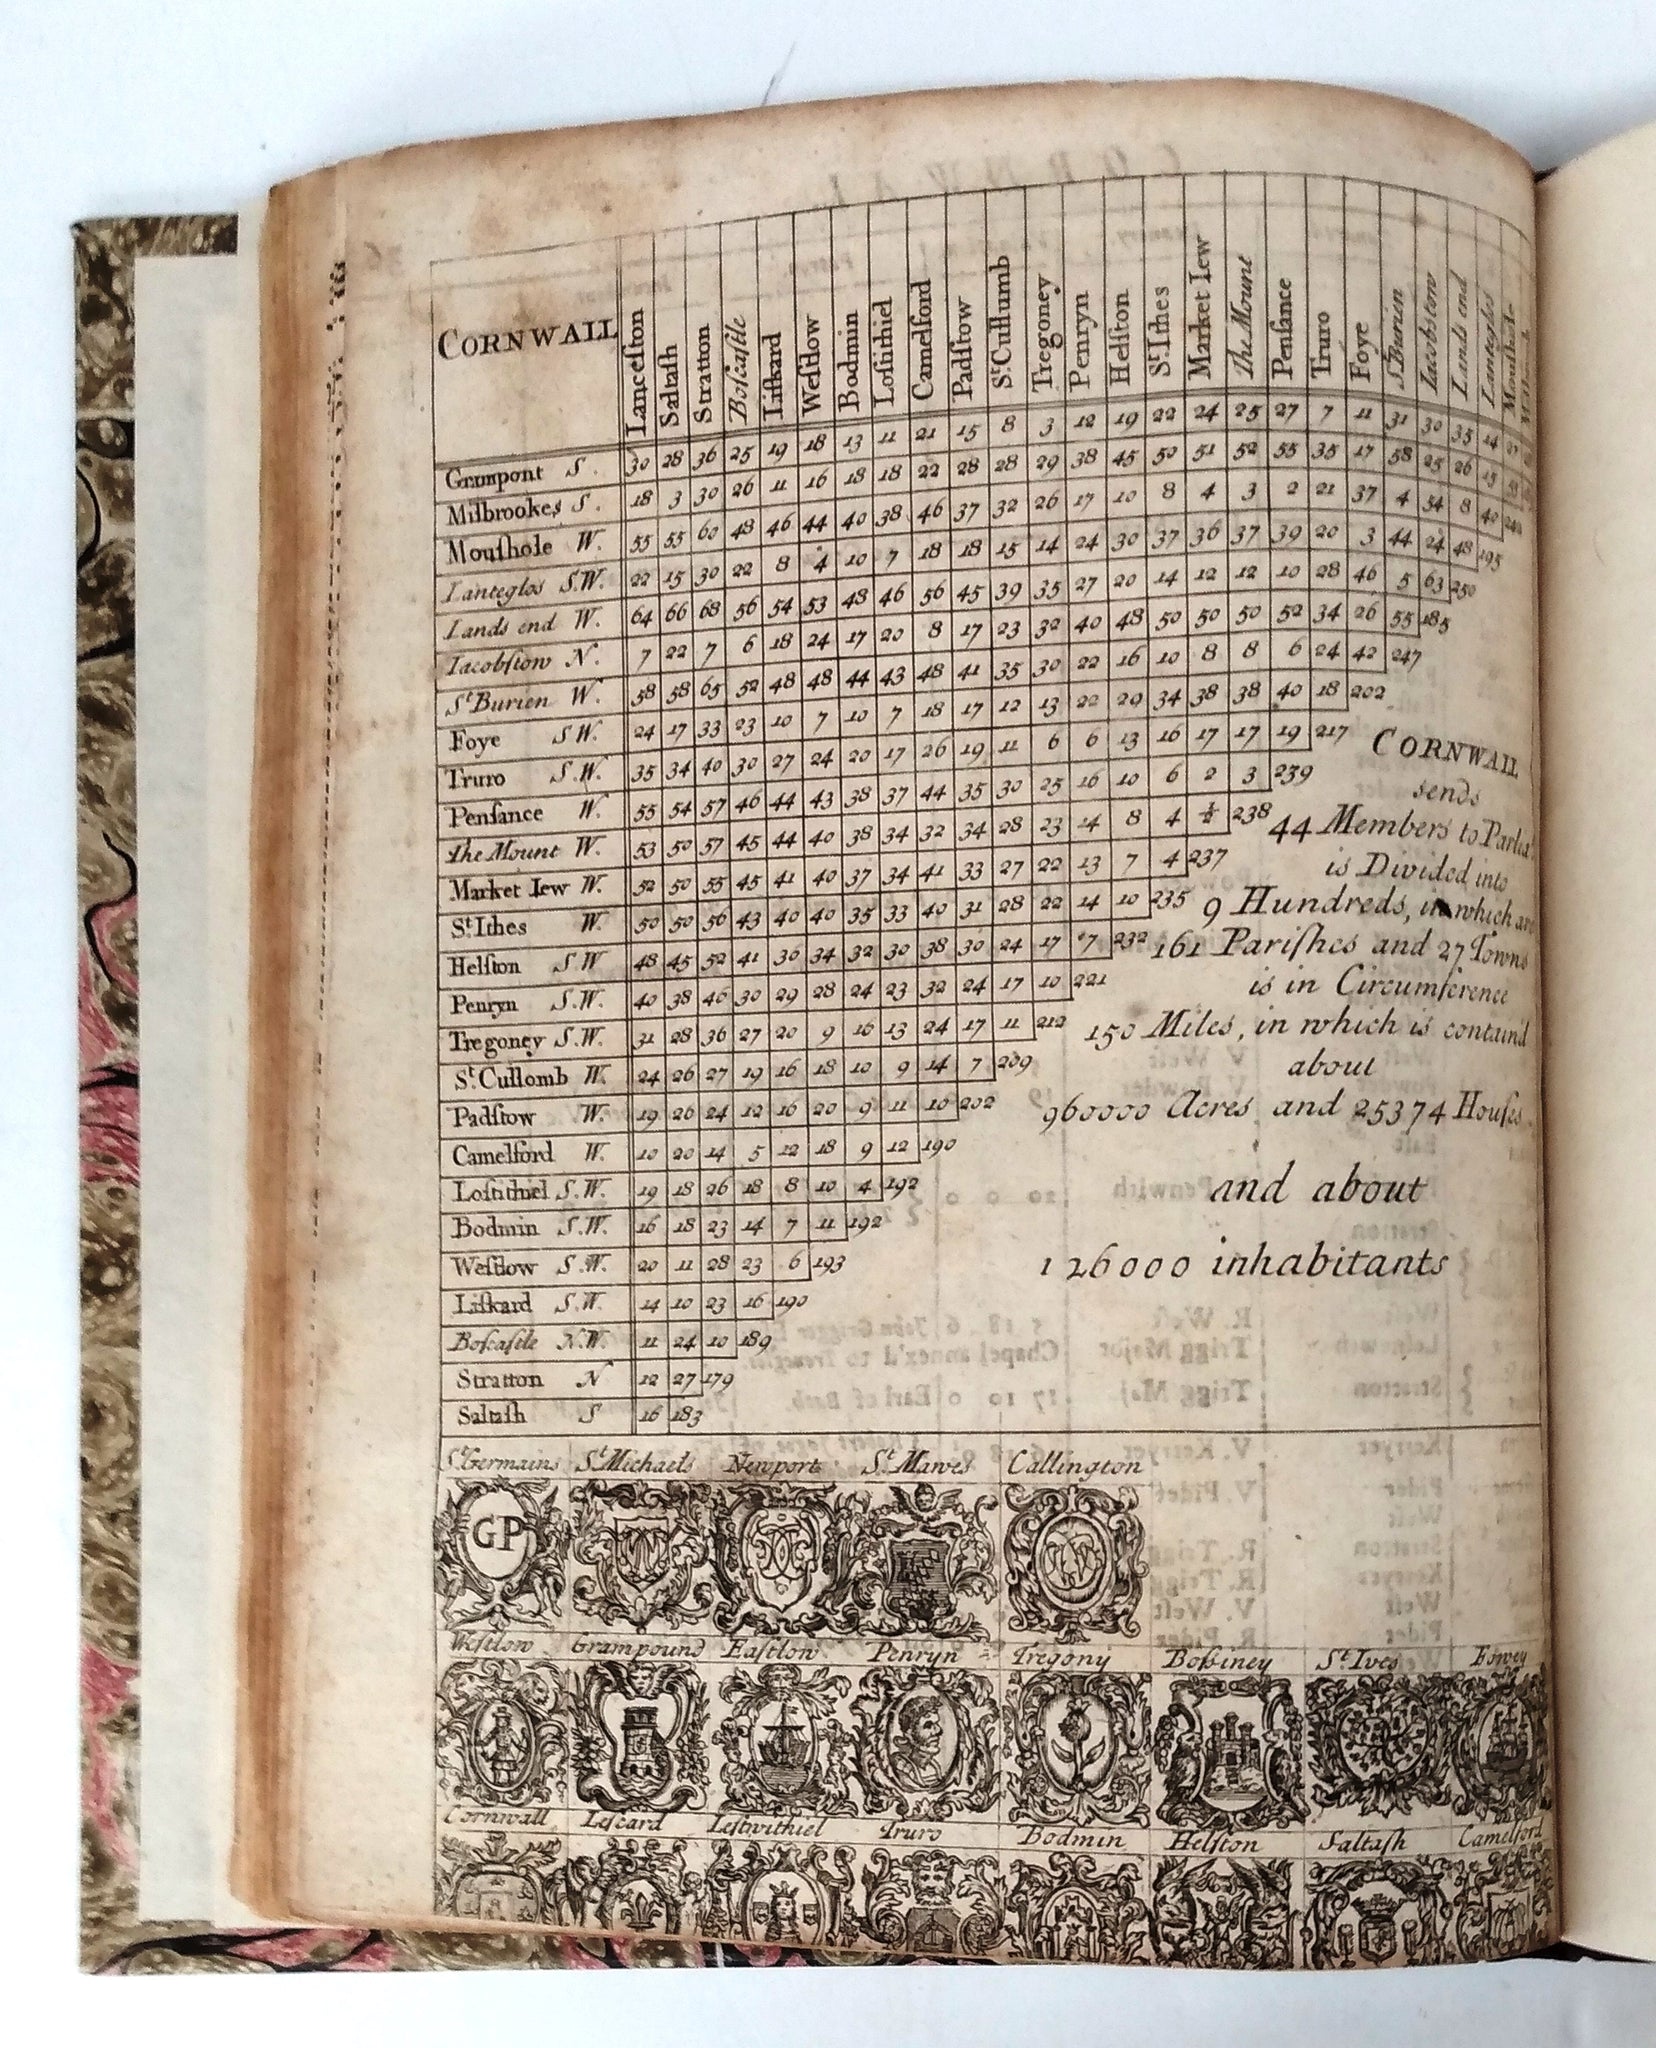 CORNWALL Lanceston Saltash Stratton Boscastle Liskard Westlow Bodmin Lostithiel Camelsford Padstow St. Cullumb Tregoney Penryn Helston St. Ithes Market Iew The Mount Pensance Truro Foye St. Burien Iacobstow Lands end Lanteglos
Grampont S. 30 28 36 25 19 18 13 11 21 15 8 3 12 19 22 24 25 27 7 11 31 30 35 14
Milbrookes S. 18 3 30 26 11 16 18 18 22 28 28 29 38 45 50 51 52 55 35 17 58 25 26 15
Moushole W. 55 55 60 48 46 44 40 38 46 37 32 26 17 10 8 4 3 2 21 37 4 54 8 40
Lanteglos S.W. 22 15 30 22 8 4 10 7 18 18 15 14 24 30 37 36 37 39 20 3 44 24 48 195
Lands end W. 64 66 68 56 54 53 48 46 56 45 39 35 27 20 14 12 12 10 28 46 5 63 250
Iacobstow N. 7 22 7 6 18 24 17 20 8 17 23 32 40 48 50 50 50 52 34 26 55 185
St. Burien W. 58 58 65 52 48 48 44 43 48 41 35 30 22 16 10 8 8 6 24 42 247
Foye S.W. 24 17 33 23 10 7 10 7 18 17 12 13 22 29 34 38 38 40 18 202
Truro S.W. 35 34 40 30 27 24 20 17 26 19 11 6 6 13 16 17 17 19 217
Pensance W. 55 54 57 46 44 43 38 37 44 35 30 25 16 10 6 2 3 239
The Mount W. 53 50 57 45 44 40 38 34 32 34 28 23 14 8 4 ½ 238
Market Iew W. 52 50 55 45 41 40 37 34 41 33 27 22 13 7 4 237
St. Ithes W. 50 50 56 43 40 40 35 33 40 31 28 22 14 10 235
Helston S.W 48 45 52 41 36 34 32 30 38 30 24 17 7 232
Penryn S.W. 40 38 46 30 29 28 24 23 32 24 17 10 221
Tregoney S.W. 31 28 36 27 20 9 16 13 24 17 11 212
St. Cullomb W. 24 26 27 19 16 18 10 9 14 7 209
Padstow W. 19 26 24 12 16 20 9 11 10 202
Camelsford W. 10 20 14 5 12 18 9 12 190
Lostithiel S.W. 19 18 26 18 8 10 4 192
Bodmin S.W. 16 18 23 14 7 11 192
Westlow S.W. 20 11 28 23 6 193
Liskard S.W. 14 10 23 16 190
Boscastle N.W. 11 24 10 189
Stratton N 12 27 179
Saltash S 16 183
CORNWALL
sends
44 Members to Parlia
is Divided into
9 Hundreds, in which are
161 Parishes and 27 Towns
is in Circumference
150 Miles, in which is containd
about
960000 Acres and 25374 Houses
and about
126000 inhabitants
St. Germains St. Michaels Newport St. Mawes Callington
GP
Westlow Grampound Eastlow Penryn Tregony Bossiney St. Ives Fowey
Cornwall Lescard Lestwithiel Truro Bodmin Helston Saltash Camelford